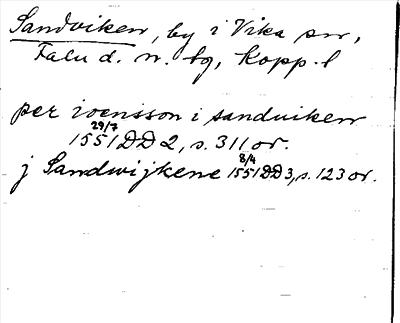 Sandviken, by i Vika sn,
Falu d. n. bg, Kopp. l
per ioensson i sanduiken
29/7
1551 DD 2, s. 311 or.
8/4
j Sandwijkene 1551 DD 3, s. 123 or.